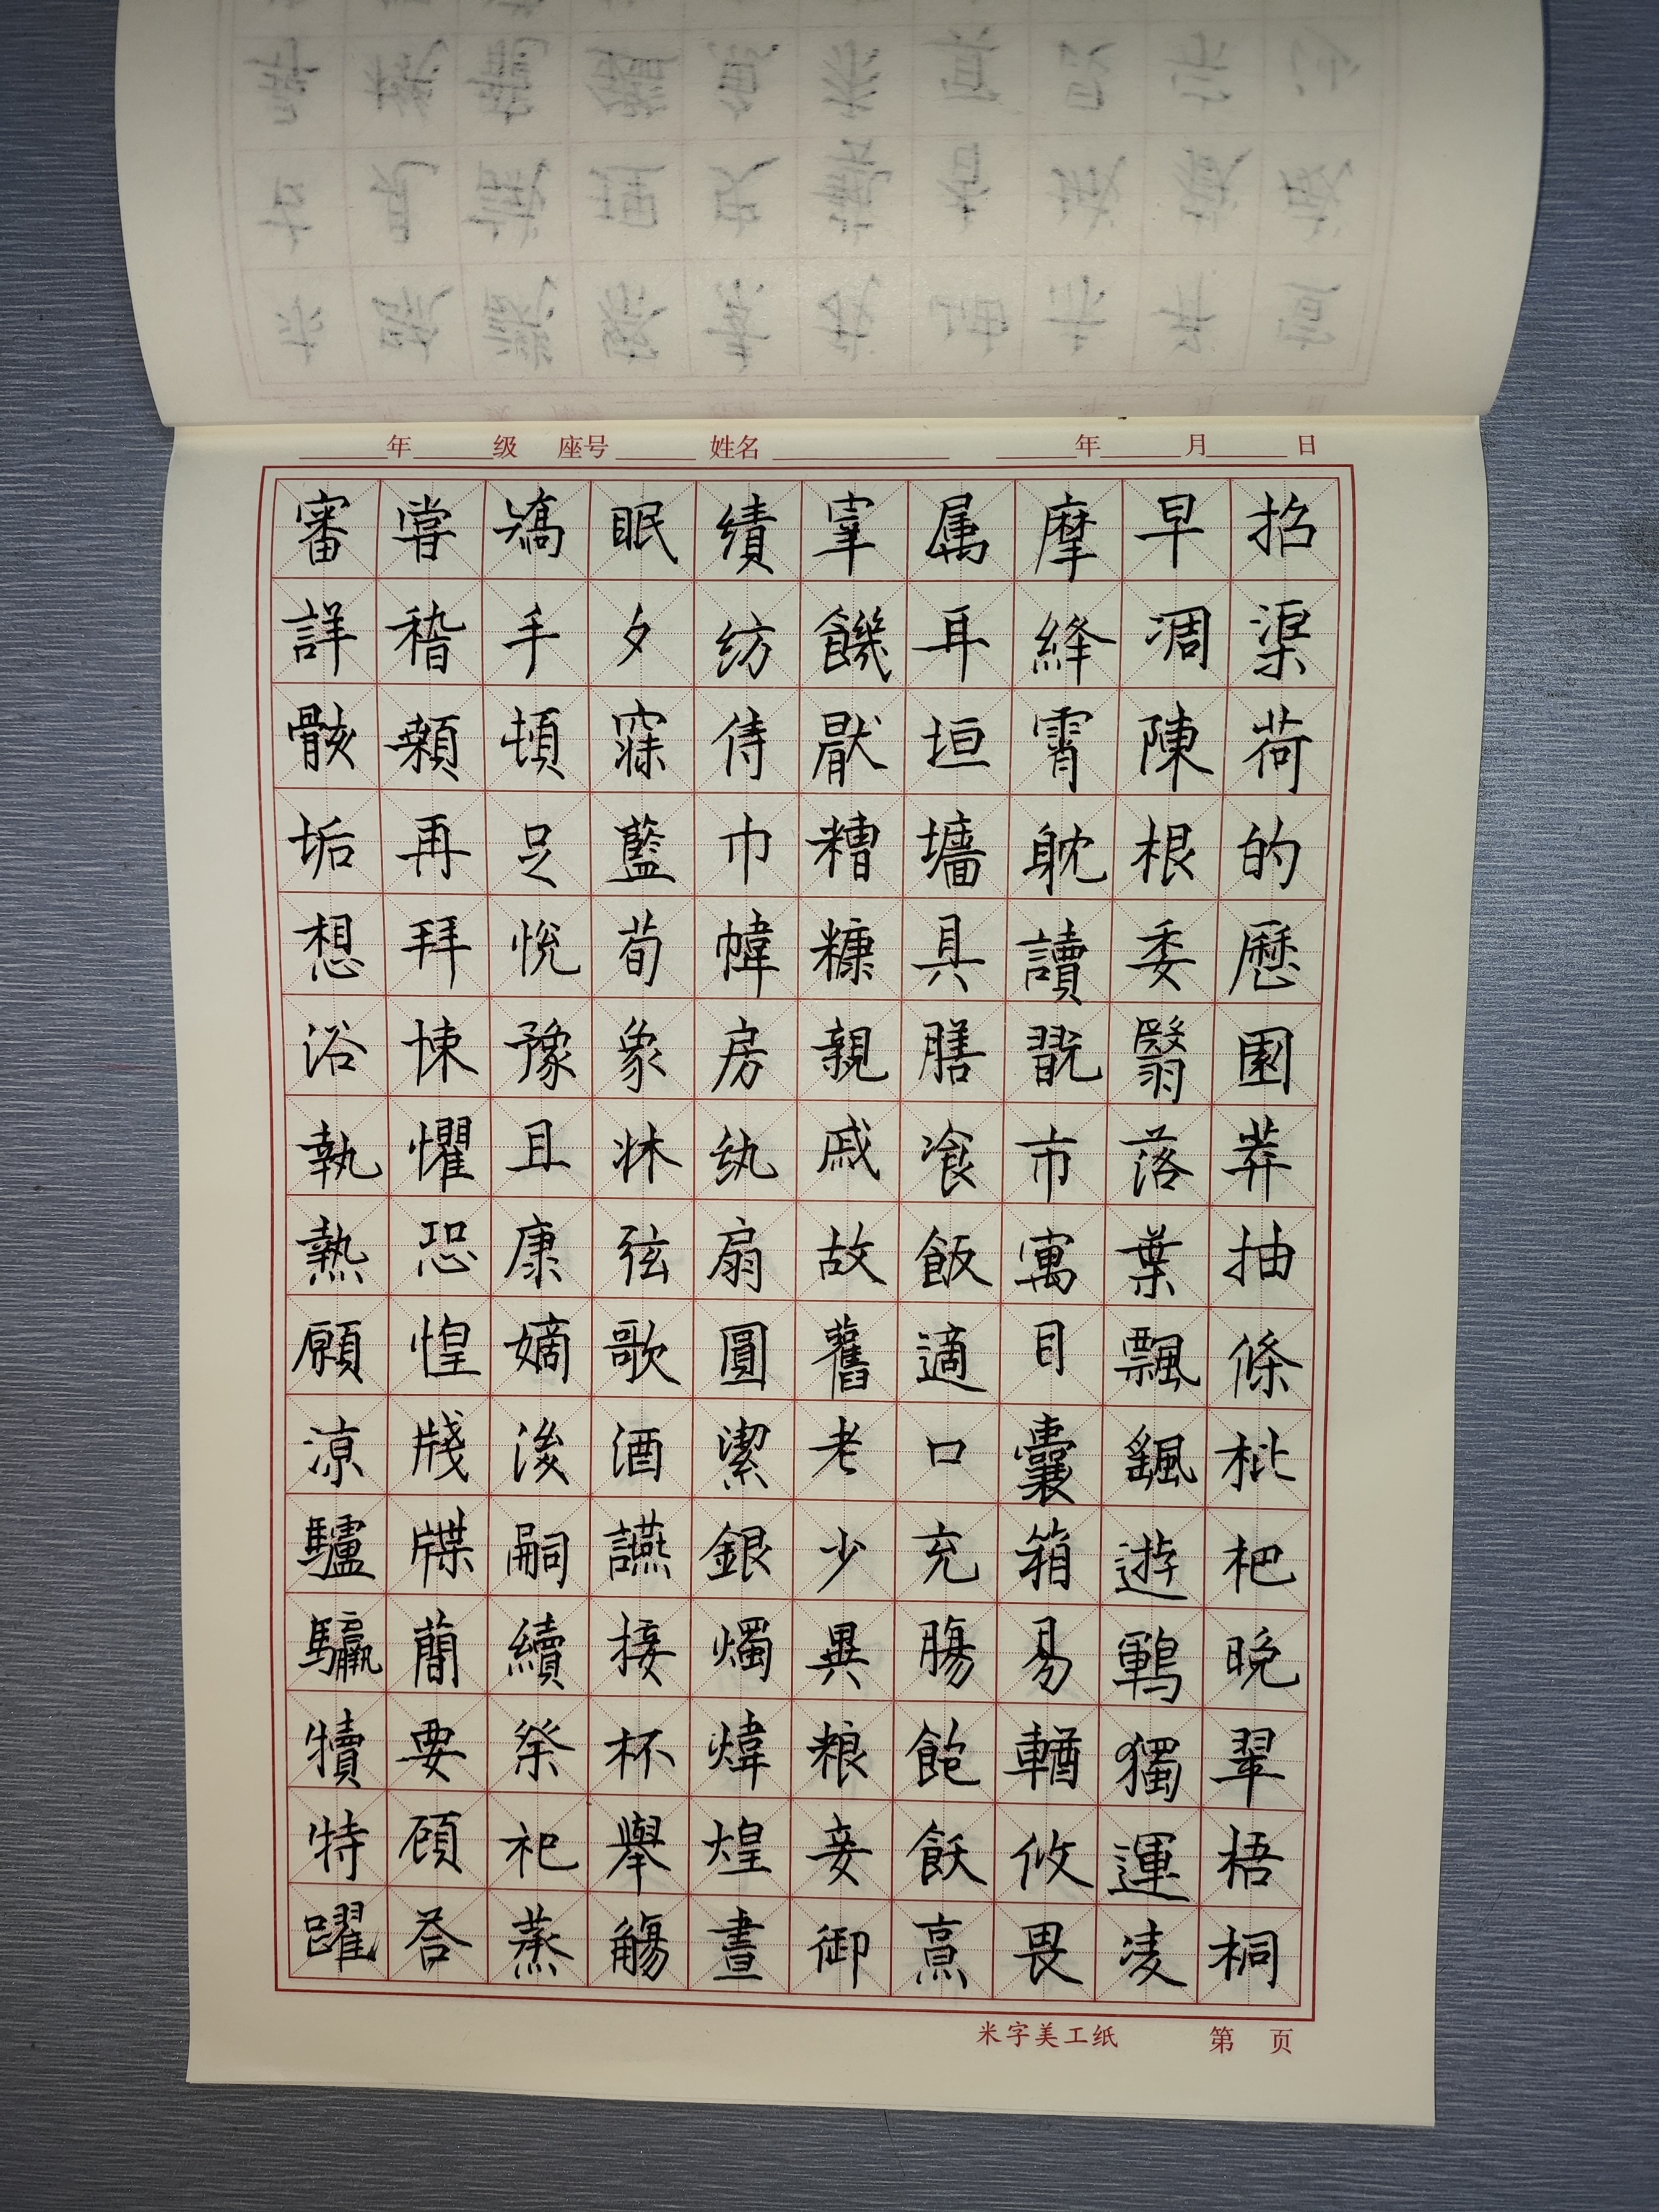 年 级 座号 姓名 年 月 日
招渠荷的歷園莽抽條枇杷晚翠梧桐
早凋陳根委翳落葉飄颻遊鶤獨運凌
摩絳霄耽讀翫市寓目囊箱易輶攸畏
属耳垣墻具膳飡飯適口充腸飽飫烹
宰饑厭糟糠親戚故舊老少異粮妾御
績紡侍巾幃房紈扇圓潔銀燭煒煌晝
眠夕寐藍筍象牀弦歌酒讌接杯舉觴
矯手頓足悅豫且康嫡後嗣續祭祀蒸
嘗稽顙再拜悚懼恐惶牋牒簡要顧答
審詳骸垢想浴執熱願涼驢驘犢特躍
米字美工纸 第 页